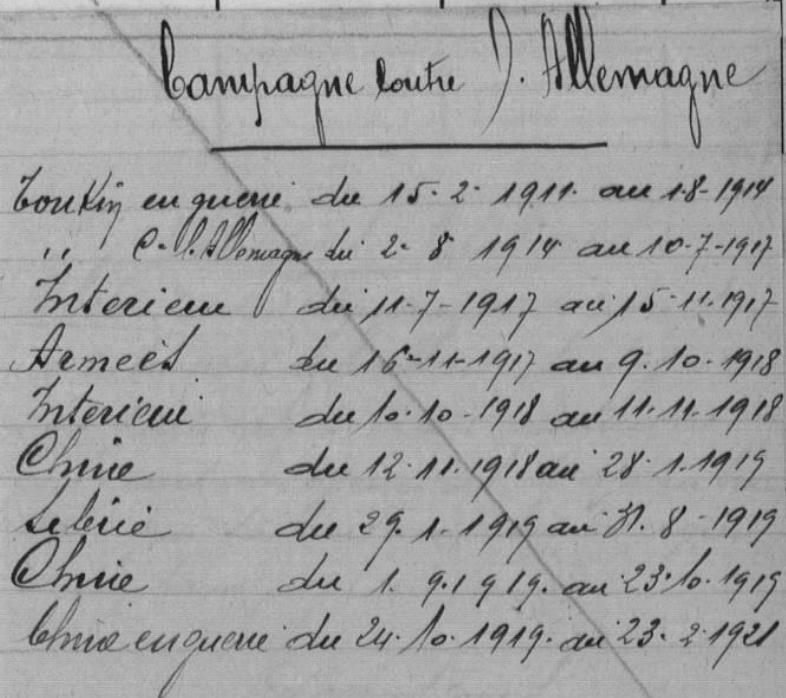 Campagne contre l'Allemagne
Tonkin en guerre du 15-2-1911 au 1-8-1914
" C. l'Allemagne du 2-8 1914 au 10-7-1917
Interieur du 11-7-1917 au 15-11-1917
Armées du 16-11-1917 au 9.10.1918
Interieur du 10.10-1918 au 11.11.1918
Chine du 12.11.1918 au 28.1.1919
Siberie du 29.1.1919 au 31.8-1919
Chine du 1.9.1919. au 23.10.1919
Chine en guerre du 24.10.1919. au 23.2.1921